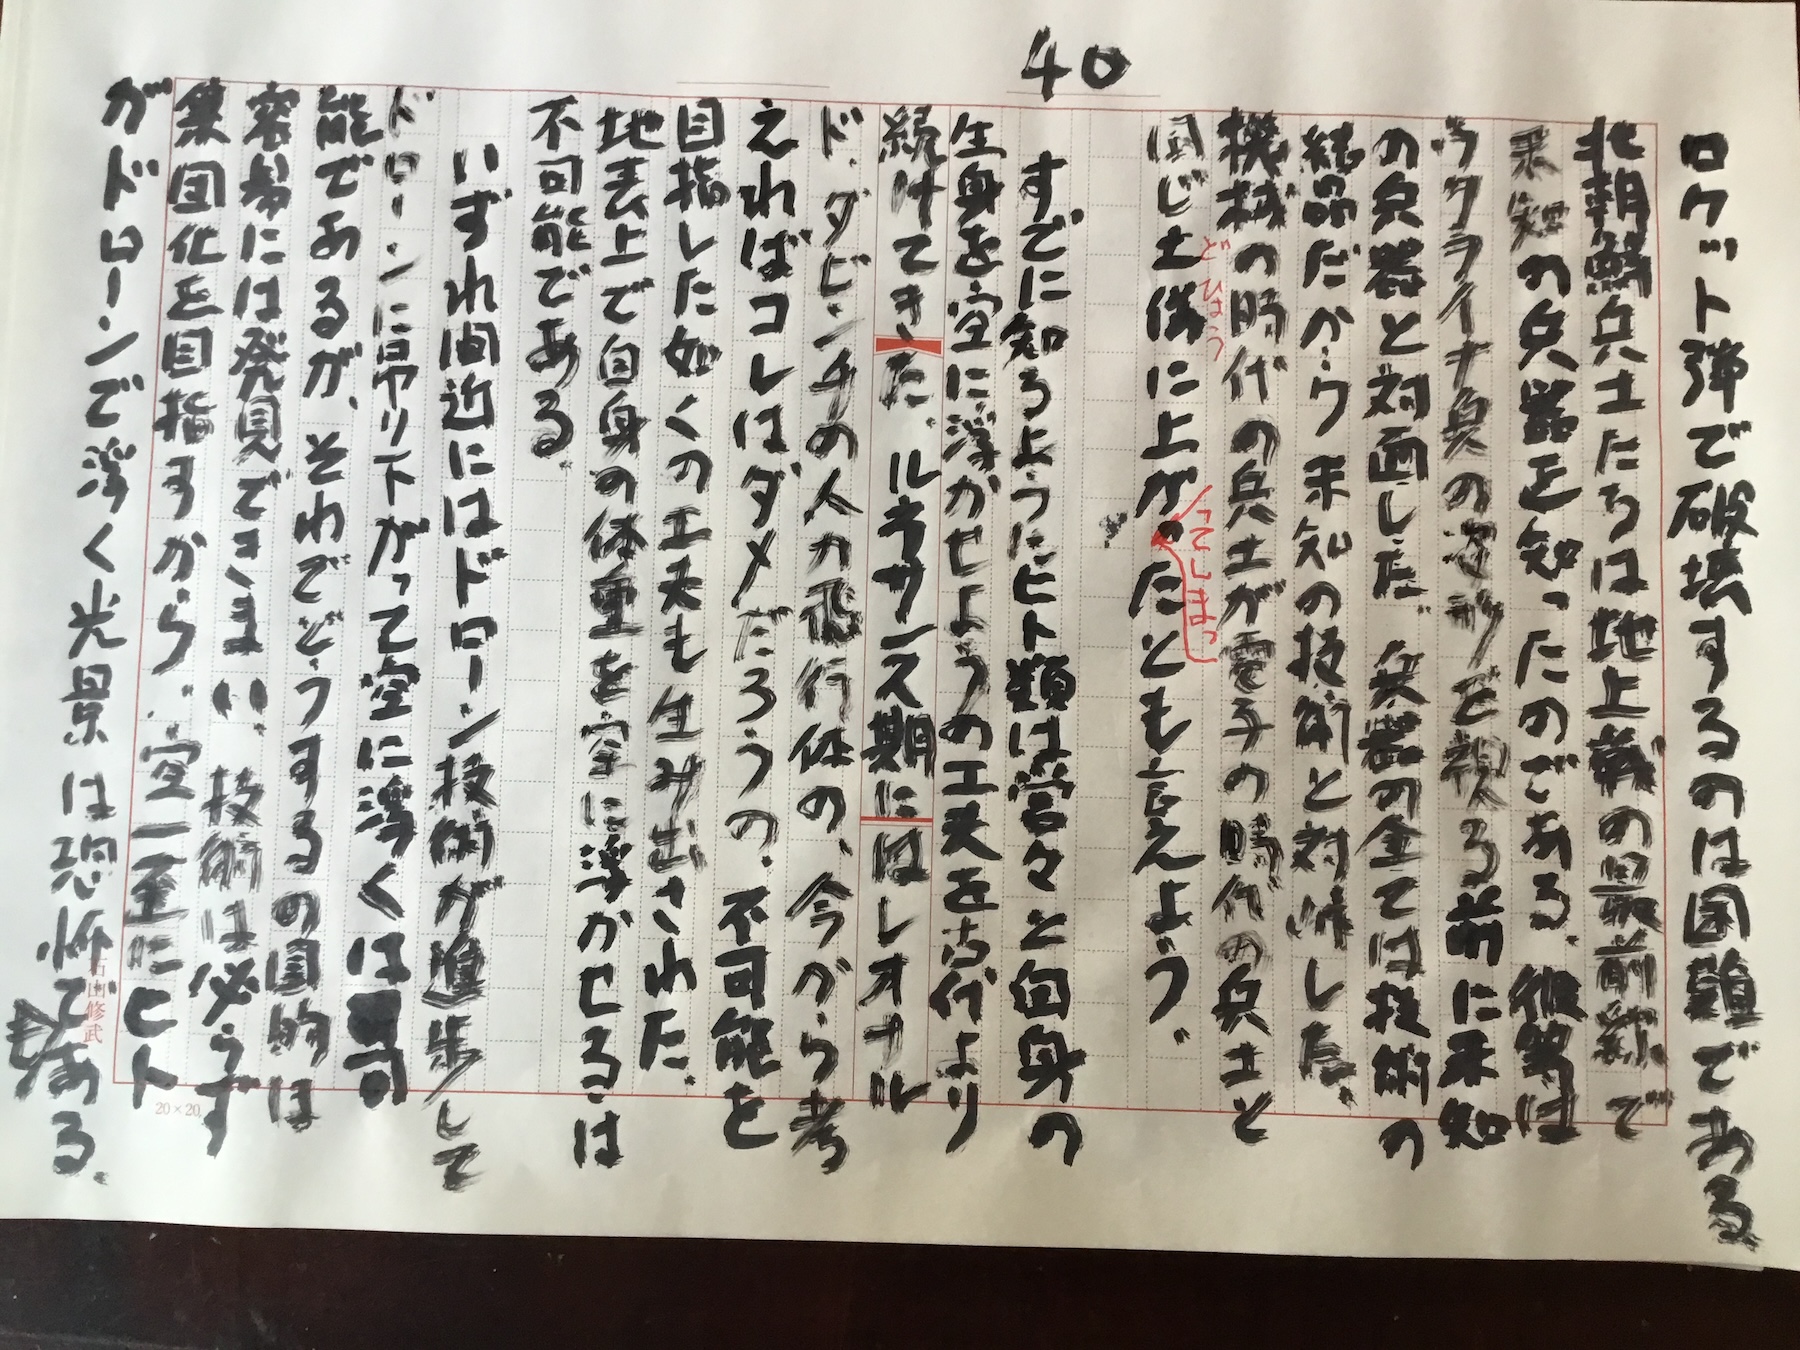 40
ロケット弾で破壊するのは困難である
北朝鮮兵士たちは地上戦の最前線で
未知の兵器を知ったのである。彼等は
ウクライナ兵の姿形を視る前に未知
の兵器と対面した。兵器の全ては技術の
結品だから未知の技術と対峙した。
機械の時代の兵士が電子の時代の兵士と
同じ土俵に上がったとも言えよう。
どひょう
ってしまっ
すでに知るようにヒト類は営々と自身の
生身を空に浮かせようの工夫を古代より
続けてきた。ルネサンス期にはレオナル
ド、ダビンチの人力飛行体の、今から考
えればコレはダメだろうの、不可能を
目指した如くの工夫も生み出された。
地表上で自身の体重を空に浮かせるは
不可能である。
いずれ間近にはドローン技術が進歩して
ドローンに吊り下がって空に浮くは可
能であるが、それでどうするの目的は
容易には発見できまい、技術は必らず
集団化を目指すから、空一面にヒト
がドローンで浮く光景は恐怖である。
石山修武
20×20